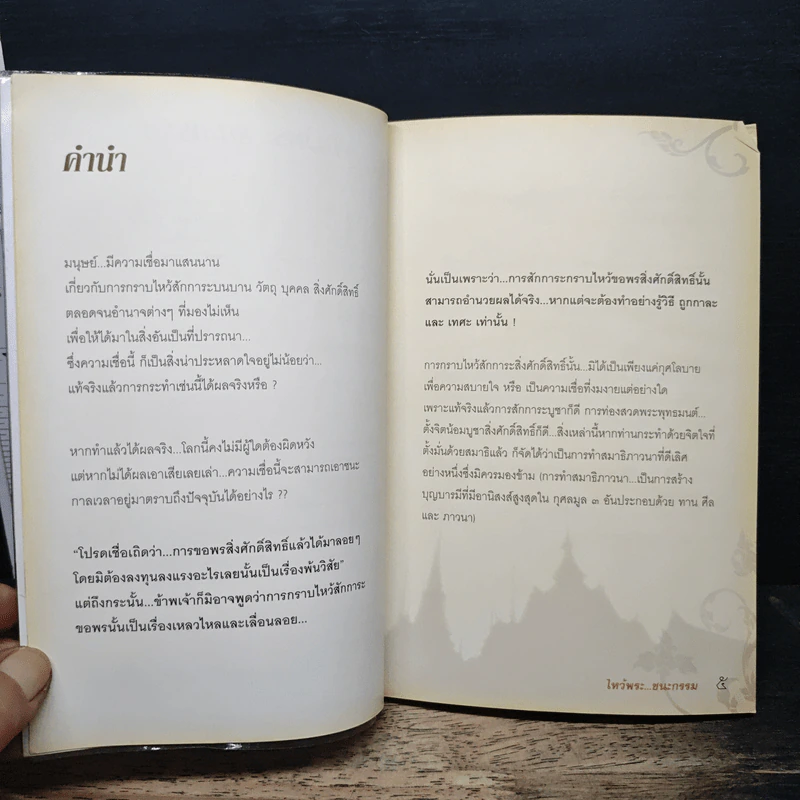 คำนำ
มนุษย์...มีความเชื่อมาแสนนาน
เกี่ยวกับการกราบไหว้สักการะบนบาน วัตถุ บุคคล สิ่งศักดิ์สิทธิ์
ตลอดจนอำนาจต่างๆ ที่มองไม่เห็น
เพื่อให้ได้มาในสิ่งอันเป็นที่ปรารถนา...
ซึ่งความเชื่อนี้ ก็เป็นสิ่งน่าประหลาดใจอยู่ไม่น้อยว่า...
แท้จริงแล้วการกระทำเช่นนี้ได้ผลจริงหรือ ?
หากทำแล้วได้ผลจริง...โลกนี้คงไม่มีผู้ใดต้องผิดหวัง
แต่หากไม่ได้ผลเอาเสียเลยเล่า...ความเชื่อนี้จะสามารถเอาชนะ
กาลเวลาอยู่มาตราบถึงปัจจุบันได้อย่างไร ??
"โปรดเชื่อเถิดว่า...การขอพรสิ่งศักดิ์สิทธิ์แล้วได้มาลอยๆ
โดยมิต้องลงทุนลงแรงอะไรเลยนั้นเป็นเรื่องพ้นวิสัย"
แต่ถึงกระนั้น...ข้าพเจ้าก็มิอาจพูดว่าการกราบไหว้สักการะ
ขอพรนั้นเป็นเรื่องเหลวไหลและเลื่อนลอย...
นั่นเป็นเพราะว่า...การสักการะกราบไหว้ขอพรสิ่งศักดิ์สิทธิ์นั้น
สามารถอำนวยผลได้จริง...หากแต่จะต้องทำอย่างรู้วิธี ถูกกาละ
และ เทศะ เท่านั้น !
การกราบไหว้สักการะสิ่งศักดิ์สิทธิ์นั้น...มิได้เป็นเพียงแค่กุศโลบาย
เพื่อความสบายใจ หรือ เป็นความเชื่อที่งมงายแต่อย่างใด
เพราะแท้จริงแล้วการสักการะบูชาก็ดี การท่องสวดพระพุทธมนต์...
ตั้งจิตน้อมบูชาสิ่งศักดิ์สิทธิ์ก็ดี...สิ่งเหล่านี้หากท่านกระทำด้วยจิตใจที่
ตั้งมั่นด้วยสมาธิแล้ว ก็จัดได้ว่าเป็นการทำสมาธิภาวนาที่ดีเลิศ
อย่างหนึ่งซึ่งมิควรมองข้าม (การทำสมาธิภาวนา...เป็นการสร้าง
บุญบารมีที่มีอานิสงส์สูงสุดใน กุศลมูล ๓ อันประกอบด้วย ทาน ศีล
และ ภาวนา)
ไหว้พระ...ชนะกรรม ๕